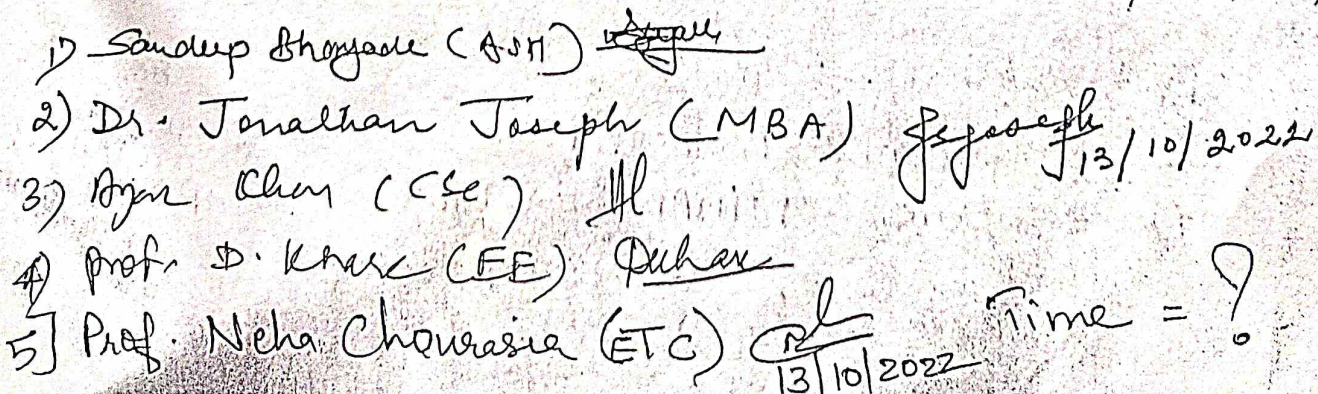 1) Sandeep Bhoyade (ASH)
2) Dr. Jonathan Joseph (MBA) 13/10/2022
3) (CSE)
4) Prof. D. Khare (EE)
5] Prof. Neha Chourasia (ETC) 13/10/2022 Time = ?